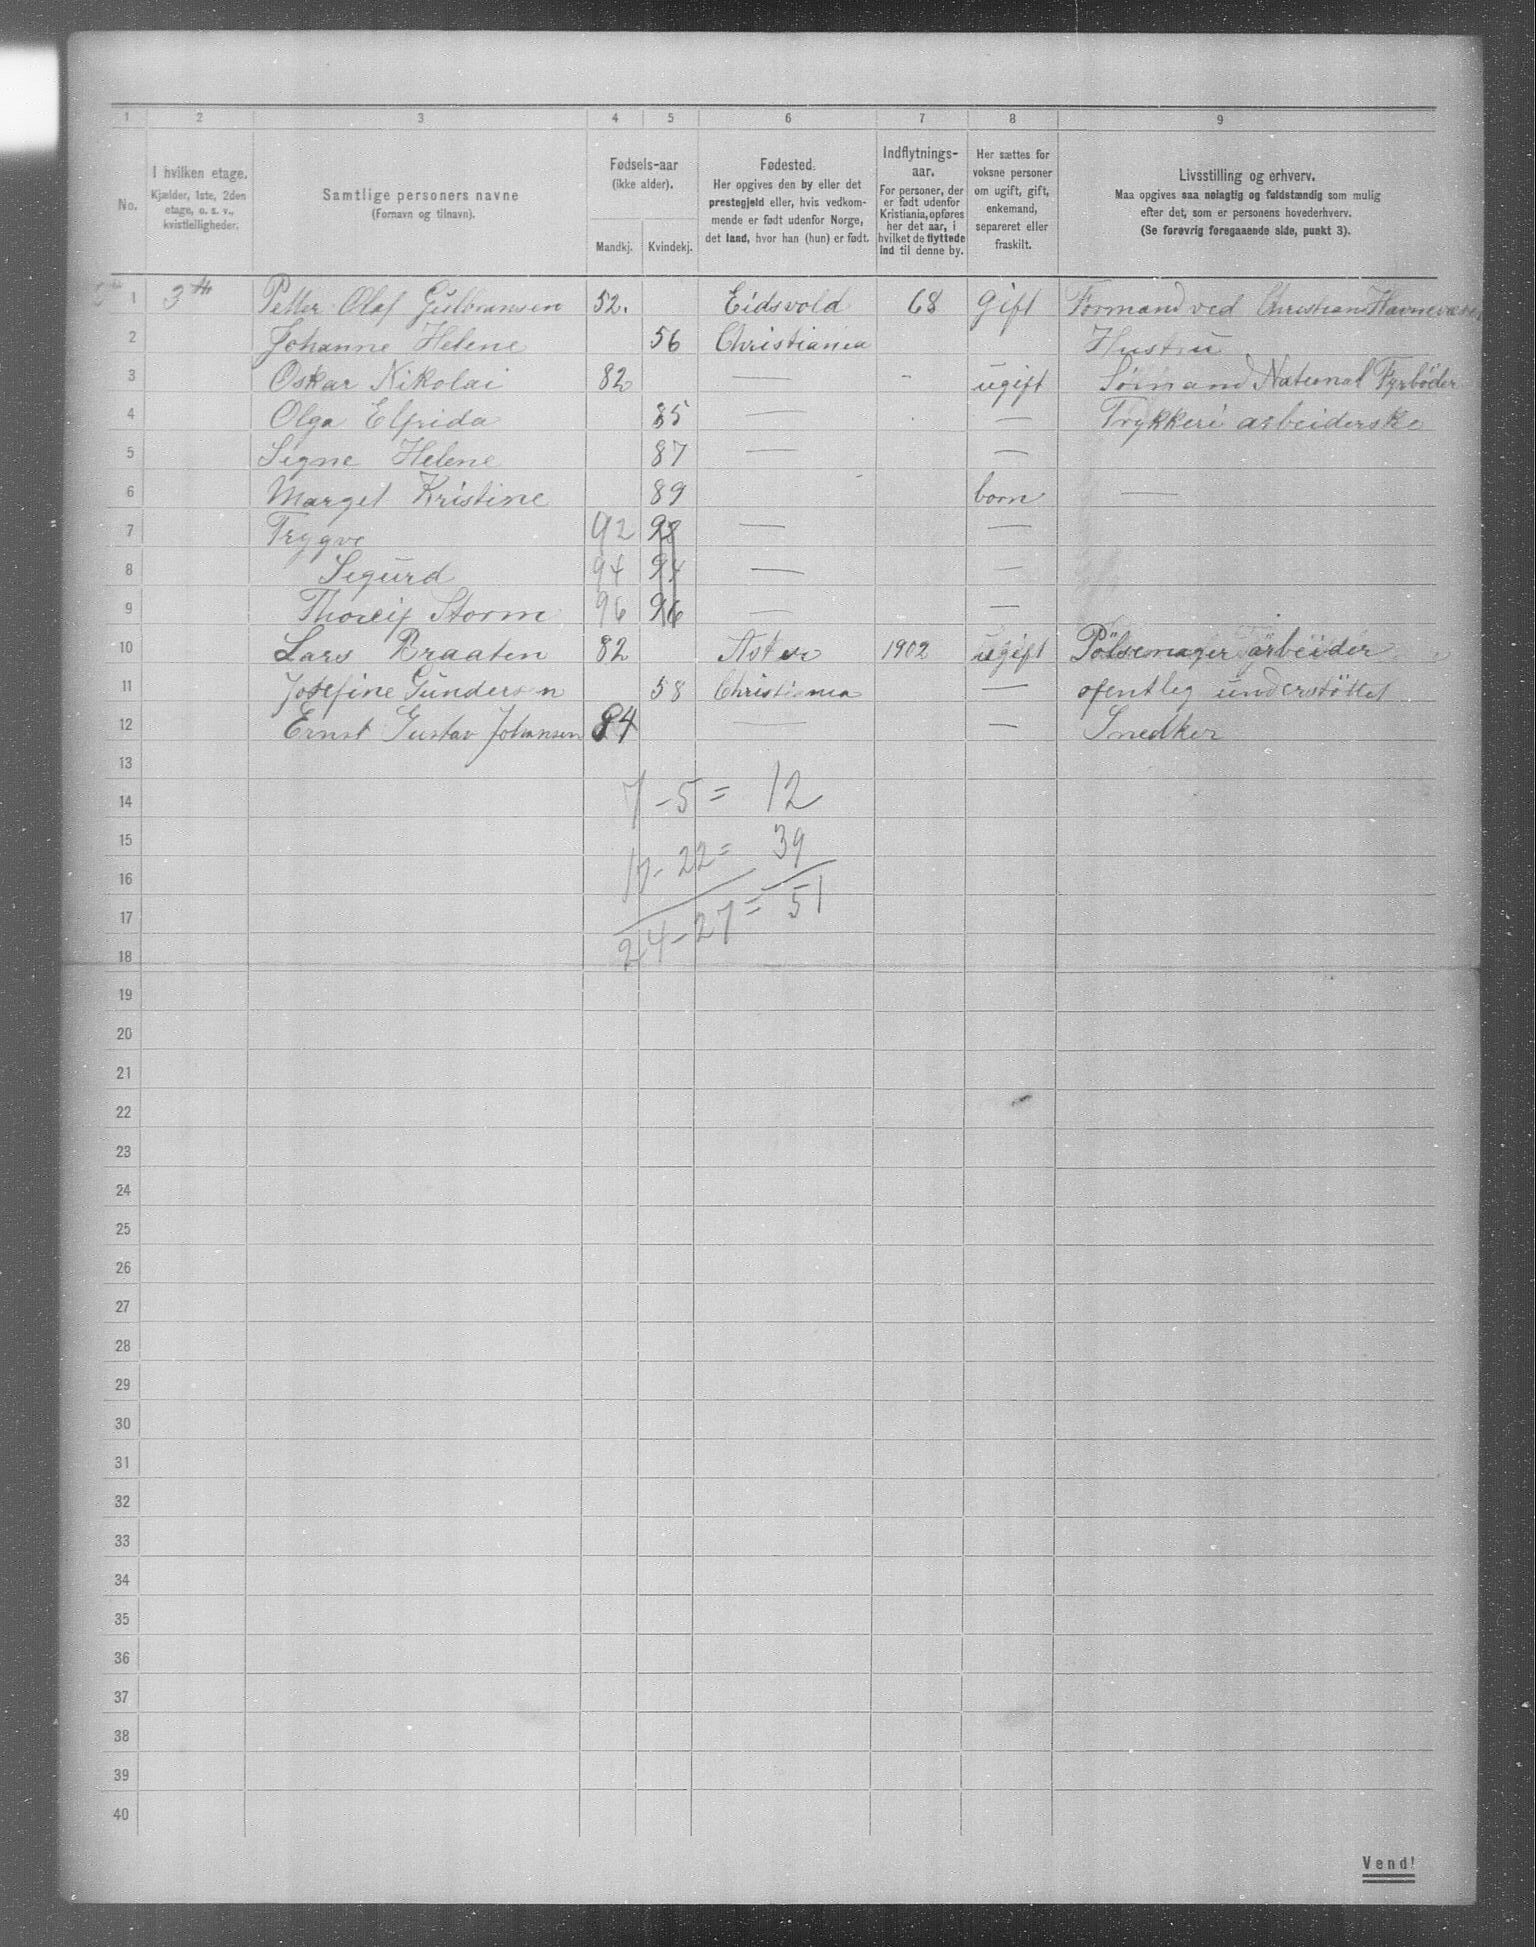 1 2 3 4 5 6 7 8 9
No.
I hvilken etage.
Kjælder, 1ste, 2den
etage, o. s. v.,
kvistleiligheder.
Samtlige personers navne
(Fornavn og tilnavn).
Fødsels-aar
(ikke alder).
Mandkj. Kvindekj.
Fødested.
Her opgives den by eller det
prestegjeld eller, hvis vedkom-
mende er født udenfor Norge,
det land, hvor han (hun) er født.
Indflytnings-
aar.
For personer, der
er født udenfor
Kristiania, opføres
her det aar, i
hvilket de flyttede
ind til denne by.
Her sættes for
voksne personer
om ugift, gift,
enkemand,
separeret eller
fraskilt.
Livsstilling og erhverv.
Maa opgives saa nøiagtig og fuldstændig som mulig
efter det, som er personens hovederhverv.
(Se forøvrig foregaaende side, punkt 3).
1 3 Petter Olaf Gulbransen 52. Eidsvold 68 gift Formand ved Christian Havnevæsen
2 Johanne Helene 56 Christiania Hustru
3 Oskar Nikolai 82 — - ugift Sømand National Fyrböder
4 Olga Elfrida 85 — — Trykkeri arbeiderske
5 Signe Helene 87 — —
6 Marget Kristine 89 born —
7 Trygve 92 92 — —
8 Sigurd 94 94 — —
9 Thoreif Storm 96 96 — —
10 Lars Braaten 82 1902 ugift Pölsemager arbeider
11 Josefine Gundersen 58 Christiania — ofentleg understöttet
12 Ernst Gustav Johansen 84 — — Snedker
13
14 7 - 5 = 12
15
16 17 - 22 = 39
17
18 24 - 27 = 51
19
20
21
22
23
24
25
26
27
28
29
30
31
32
33
34
35
36
37
38
39
40
Vend!